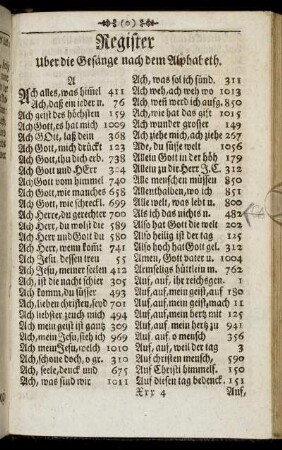 (o)
Register
Uber die Gesänge nach dem Alphabeth.
A
Ach alles, was himel 411
Ach, daß ein ieder n. 76
Ach geist des höchsten 159
Ach Gott, es hat mich 1009
Ach GOtt, laß dein 368
Ach Gott, mich drückt 123
Ach Gott, thu dich erb. 738
Ach Gott und HErr 304
Ach Gott vom himmel 740
Ach Gott, wie manches 658
Ach Gott, wie schreckl. 699
Ach Herre, du gerechter 700
Ach Herr, du wolst die 589
Ach Herr und Gott du 580
Ach Herr, wenn komt 741
Ach Jesu, dessen treu 55
Ach Jesu, meiner seelen 412
Ach, ist die nacht schier 305
Ach komm, du süsser 493
Ach, lieben christen, seyd 701
Ach liebster zeuch mich 494
Ach, mein geist ist gantz 309
Ach, mein Jesu, sieh ich 969
Ach mein Jesu, welch 1010
Ach, schone doch, o gr. 310
Ach, seele, denck und 675
Ach, was sind wir 1011
Ach, was sol ich sünd. 311
Ach weh, ach weh, wo 1013
Ach, weñ werd ich aufg. 850
Ach, wie hat das gift 1015
Ach wunder grosser 149
Ach ziehe mich, ach ziehe 267
Ade, du süsse welt 1056
Allein Gott in der höh 179
Allein zu dir Herr J. C. 312
Alle menschen müssen 850
Allenthalben, wo ich 851
Alle welt, was lebt u. 800
Als ich das nichts n. 482
Also hat Gott die welt 202
Also heilig ist der tag 115
Also hoch hat Gott gel. 312
Amen, Gott vater u. 1004
Armseligs hüttlein m. 762
Auf, auf, ihr reichsgen. 1
Auf, auf, mein geist, auf 180
Auf, auf, mein geist, mach 11
Auf, auf, mein hertz mit 125
Auf, auf, mein hertz zu 941
Auf, auf o mensch 356
Auf, auf, weil der tag 3
Auf christen mensch, 590
Auf Christi himmelf. 150
Auf diesen tag bedenck. 151
Xxx 4 Auf,